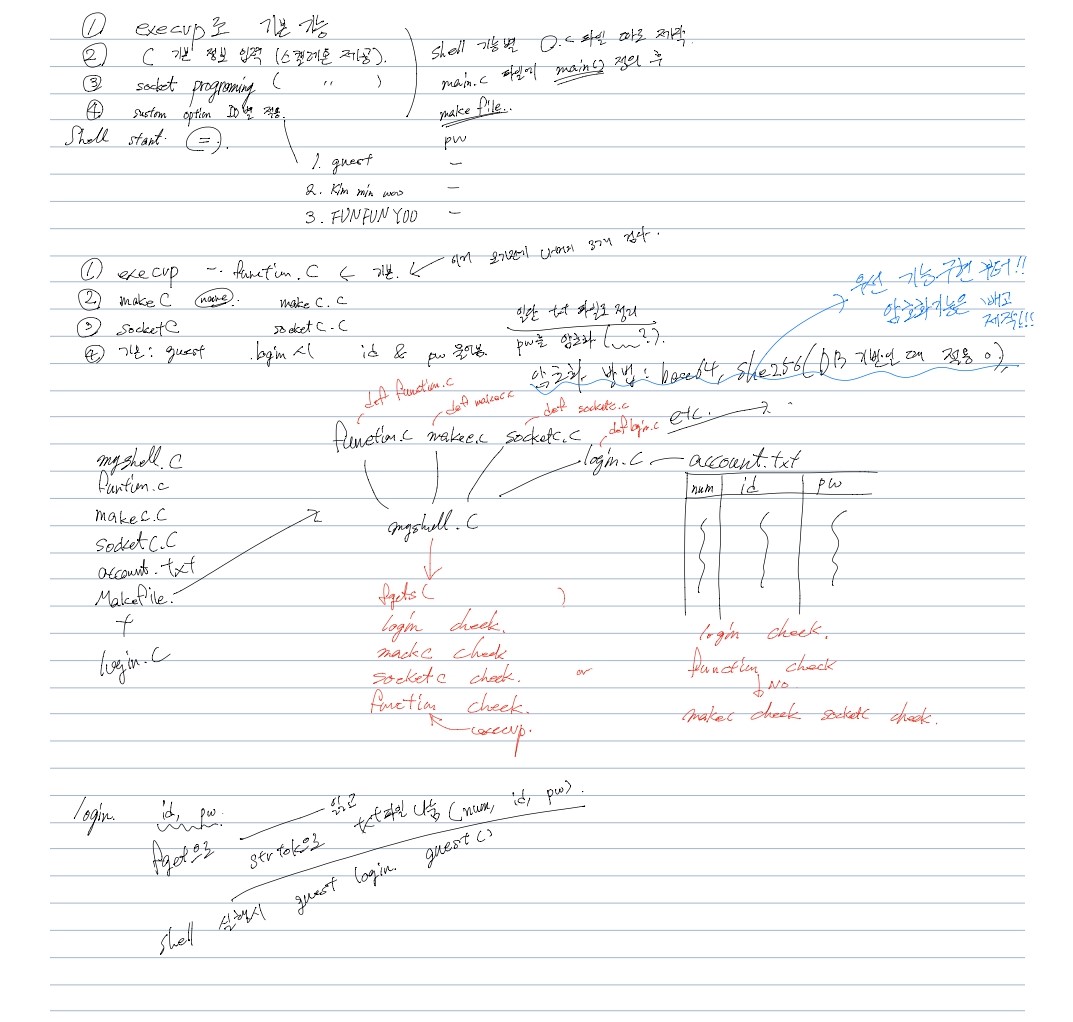 ① execvp로 기본 기능
② C 기본 정보 입력 (스켈레톤 제공).
③ socket programing ( 〃 )
④ sustom option ID별 적용.
shell 기능별 O.c 파일 따로 제작.
main.c 파일에 main() 정의 후
make file..
Shell start (=).
pw
1. guest -
2. Kim min woo -
3. FUNFUNYOO -
① execvp -- function.C ← 기본. ← 여기 오기전에 나머지 3개 검사.
② makeC (name).. makeC.C
③ socketC socketC.C
④ 기본: guest .login 시 id & pw 물어봄
일단 txt 파일로 정리
pw를 암호화 ( ?).
우선 기능구현 부터!!
암호화기능은 빼고
제작!!!
암호화 방법: base64, she256 (DB 기반일 때 적용 o),
def function.c
def makec.c
def socketc.c
def login.c
function.C makec.c socketC.C etc.
login.C account.txt
num id pw
myshell.C
funtion.c
makeC.C
socketC.C
account.txt
Makefile.
+
login.C
myshell.C
fgets( )
login check.
mackc check
socketc check.
function check.
execvp.
or
login check.
function check
No
makec check socketc check.
login. id, pw.
fget으로 읽고
strtok으로 txt파일 나눔 (num, id, pw).
shell 실행시 guest login. guest()